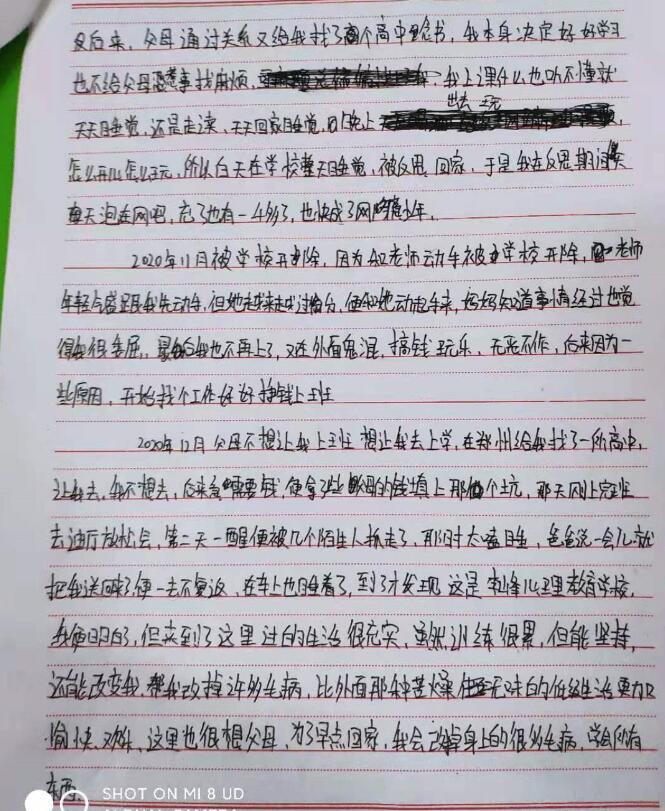 及后来，父母通过关系又给我找了个高中念书，我本身决定好好学习
也不给父母惹事找麻烦，我上课什么也听不懂就
天天睡觉，还是走读，天天回家睡觉，晚上出去玩
怎么开心怎么玩，所以白天在学校整天睡觉，被反思回家，于是我在反思期间
每天泡在网吧，充了也有一千多了，也快成了网瘾少年。
2020年11月被学校开除，因为和老师动手被学校开除，老师
年轻气盛跟我先动手，但她越来越过分，便和她动起手来，妈妈知道事情经过也觉
得我很委屈，最后我也不再上了，又在外面鬼混，搞钱玩乐，无恶不作，后来因为一
些原因，开始找个工作好好挣钱上班
2020年12月父母不想让我上班想让我去上学，在郑州给我找了一所高中，
让我去，我不想去，后来急需要钱，便拿了些父母的钱填上那个坑，那天刚上完班
去迪厅放松会，第二天一醒便被几个陌生人抓走了，那时太瞌睡，爸爸说一会儿就
把我送回来了便一去不复返，在车上也睡着了，到了才发现这是 心理教育学校，
我便明白了，但来到了这里过的生活很充实，虽然训练很累，但能坚持，
还能改变我，帮我改掉许多毛病，比外面那种苦燥无味的低级生活更加
愉快、欢乐，这里也很想父母，为了早点回家，我会改掉身上的很多毛病，学会所有
东西
SHOT ON MI 8 UD